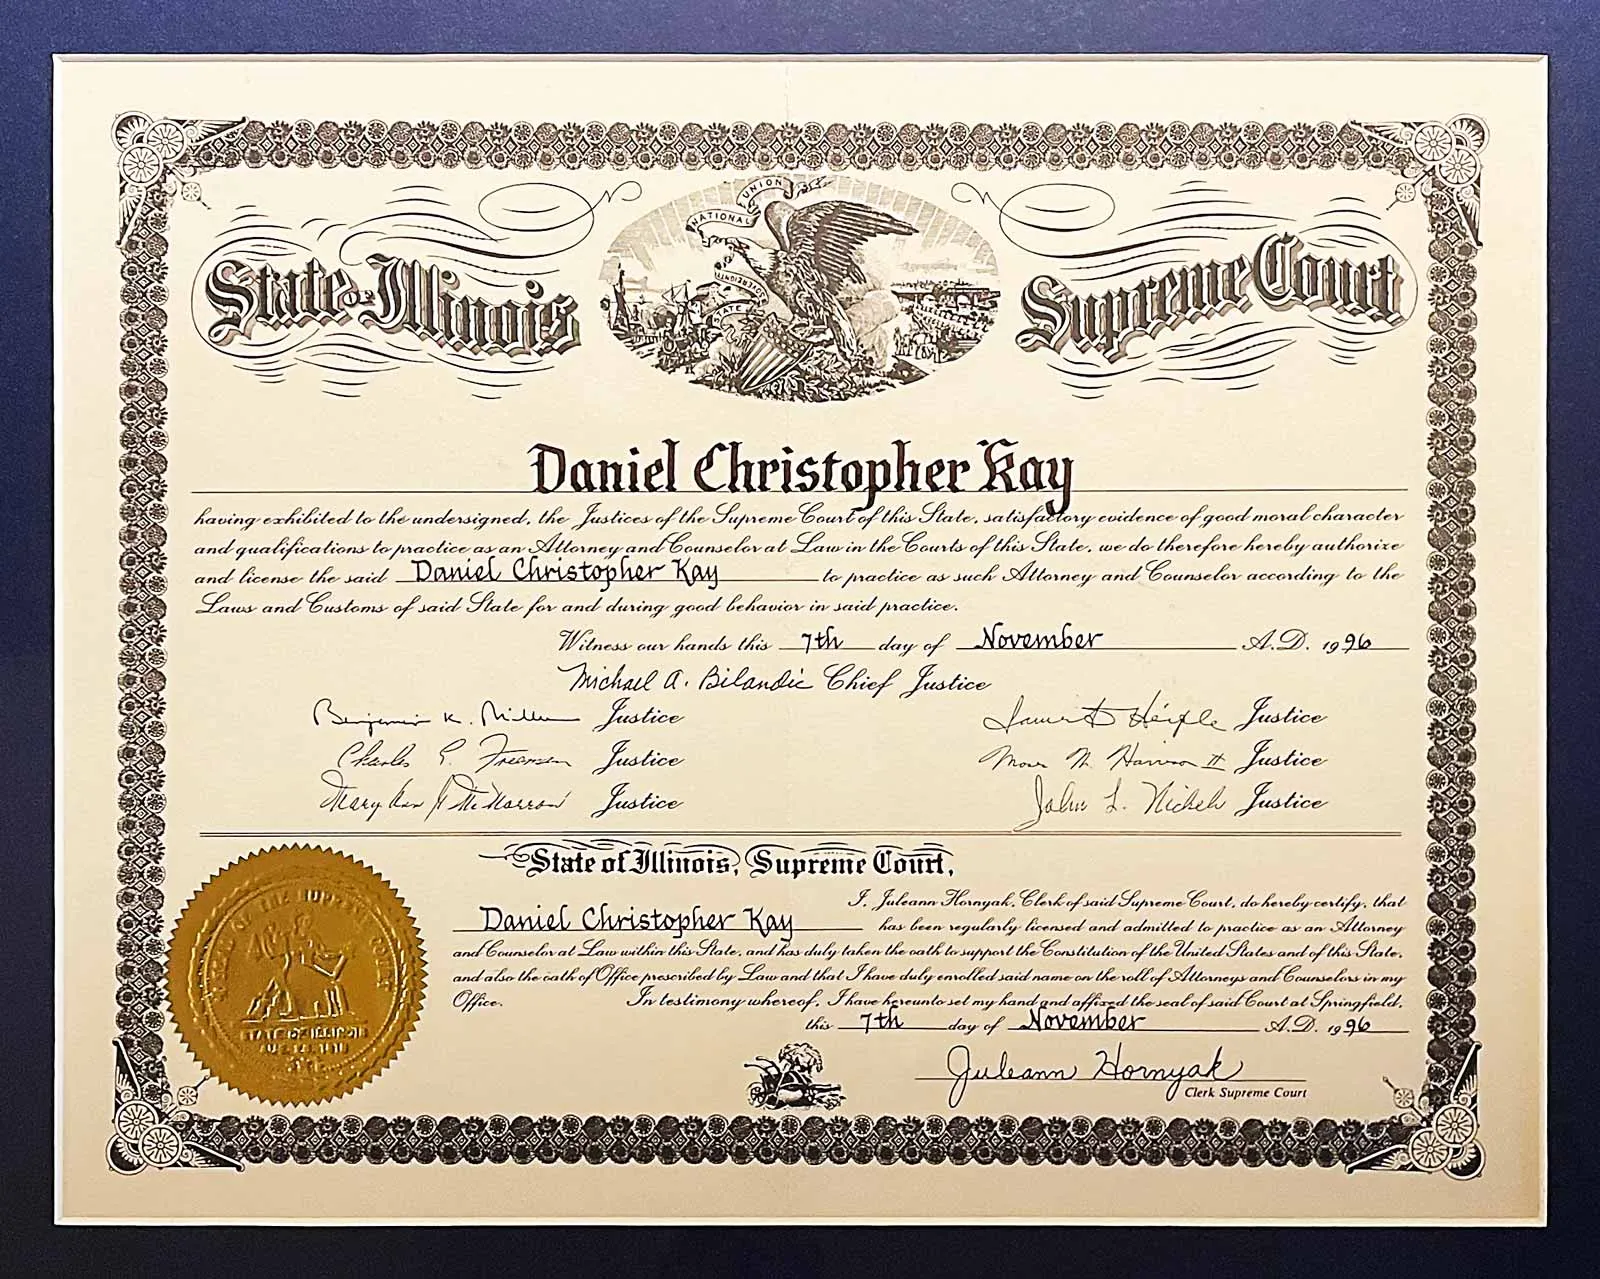 NATIONAL UNION
STATE
State of Illinois Supreme Court
Daniel Christopher Kay
having exhibited to the undersigned, the Justices of the Supreme Court of this State, satisfactory evidence of good moral character
and qualifications to practice as an Attorney and Counselor at Law in the Courts of this State, we do therefore hereby authorize
and license the said Daniel Christopher Kay to practice as such Attorney and Counselor according to the
Laws and Customs of said State for and during good behavior in said practice.
Witness our hands this 7th day of November A.D. 1996
Michael A. Bilandic Chief Justice
Benjamin K. Miller Justice James D. Heiple Justice
Charles E. Freeman Justice Moses W. Harrison II Justice
Mary Ann G. McMorrow Justice John L. Nickels Justice
State of Illinois, Supreme Court,
I, Juleann Hornyak, Clerk of said Supreme Court, do hereby certify, that
Daniel Christopher Kay has been regularly licensed and admitted to practice as an Attorney
and Counselor at Law within this State, and has duly taken the oath to support the Constitution of the United States and of this State,
and also the oath of Office prescribed by Law and that I have duly enrolled said name on the roll of Attorneys and Counselors in my
Office. In testimony whereof, I have hereunto set my hand and affixed the seal of said Court at Springfield,
this 7th day of November A.D. 1996
Juleann Hornyak
Clerk Supreme Court
SEAL OF THE SUPREME COURT
STATE OF ILLINOIS
AUG. 26, 1818